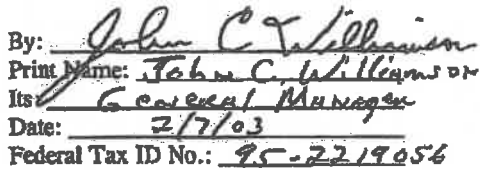 By: John C Williamson
Print Name: John C. Williamson
Its General Manager
Date: 2/7/03
Federal Tax ID No.: 95-2219056